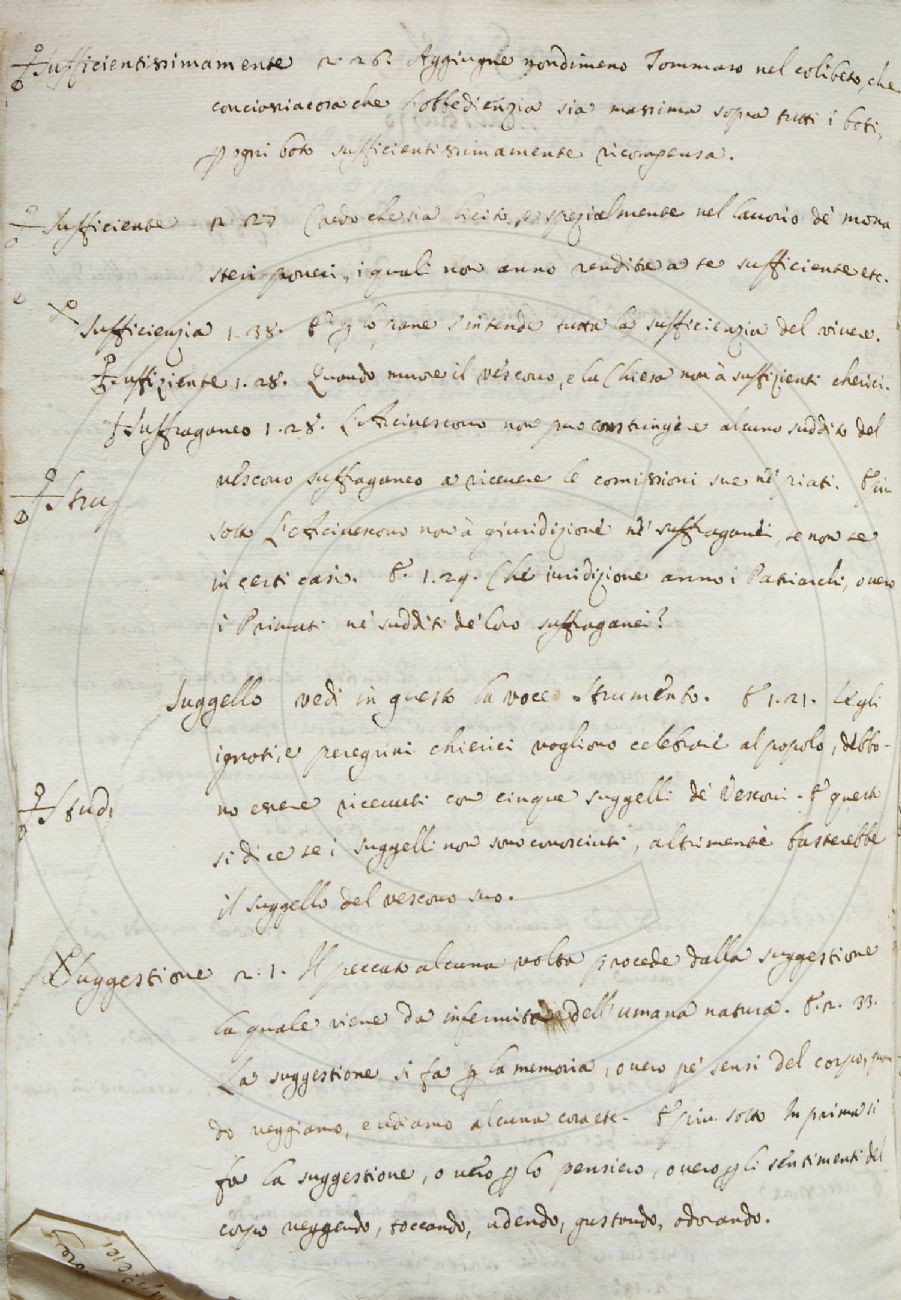 Sufficientissimamente 2. 26. Aggiugne nondimeno Tommaso nel colibeto, che
conciossiacosa che l'obbedienzia sia massima sopra tutti i boti,
ogni boto sufficientissimamente ricompensa.
Sufficiente 2 27 Credo che sia licito, e spezialmente nel lavorio de' mona
steri poveri, i quali non anno rendite a se sufficiente etc.
Sufficienzia 1. 38. E p lo pane s'intende tutta la sufficienzia del vivere.
Suffiziente 1. 28. Quando muore il vescovo, e la Chiesa non à suffizienti cherici.
Suffraganeo 1. 28. L'Arcivescovo non puo constringere alcuno suddito del
vescovo suffraganeo a ricevere le comissioni sue ne' piati. E piu
Stru
sotto L'Arcivescovo non à giuridizione ne' suffraganei, se non se
in certi casi. E 1. 29. Che juridizione anno i Patriarchi, overo
i Primati ne' sudditi de' loro suffraganei?
Suggello vedi in questo la voce Strumento. E 1. 21. Se gli
ignoti, e peregrini chierici vogliono celebrare al popolo, debbo-
no essere ricevuti con cinque suggelli de' Vescovi. E questo
Studi
si dice se i suggelli non sono conosciuti, altrimente basterebbe
il suggello del vescovo suo.
Suggestione 2. 1. Il peccato alcuna volta procede dalla suggestione
la quale viene da infermità dell'umana natura. E 2. 33.
La suggestione si fa p la memoria, overo pe' sensi del corpo, quan
do veggiamo, e udiamo alcuna cosa etc. E piu sotto In prima si
fa la suggestione, o vero p lo pensiero, overo p li sentimenti del
corpo veggendo, toccando, udendo, gustando, odorando.